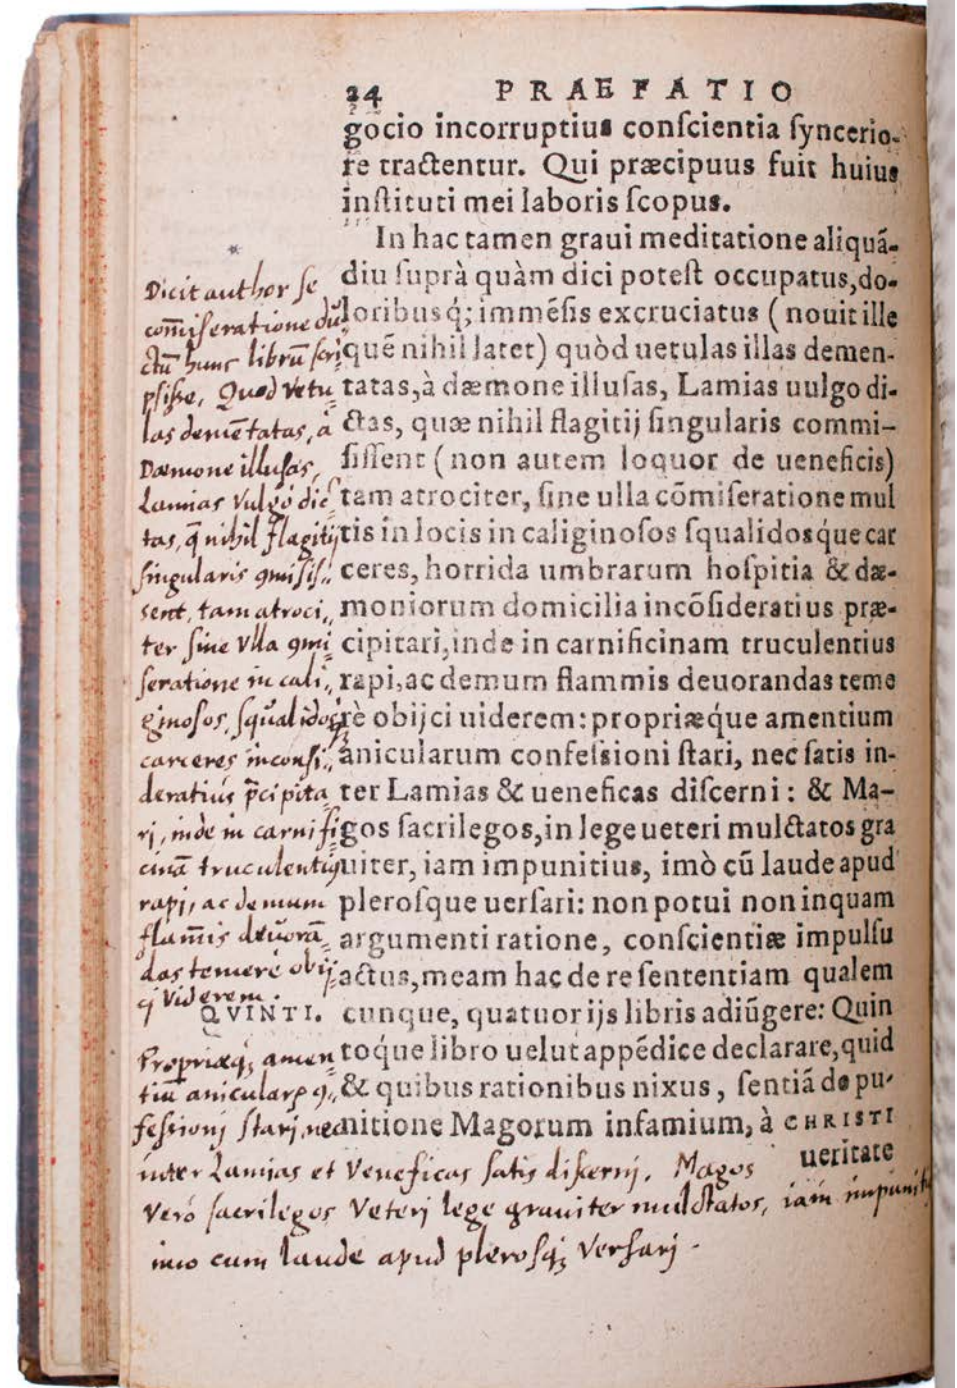 24 PRAEFATIO
gocio incorruptius conſcientia ſyncerio-
re tractentur. Qui præcipuus fuit huius
inſtituti mei laboris ſcopus.
In hac tamen graui meditatione aliquã-
diu ſuprà quàm dici poteſt occupatus, do-
loribusq́; immẽſis excruciatus (nouit ille
quẽ nihil latet) quòd uetulas illas demen-
tatas, à dæmone illuſas, Lamias uulgo di-
ctas, quæ nihil flagitij ſingularis commi-
ſiſſent (non autem loquor de ueneficis)
tam atrociter, ſine ulla cõmiſeratione mul
tis in locis in caliginoſos ſqualidosq́ue car
ceres, horrida umbrarum hoſpitia & dæ-
moniorum domicilia incõſideratius præ-
cipitari, inde in carnificinam truculentius
rapi, ac demum flammis deuorandas teme
rè obijci uiderem: propriæq́ue amentium
anicularum confeſsioni ſtari, nec ſatis in-
ter Lamias & ueneficas diſcerni: & Ma-
gos ſacrilegos, in lege ueteri mulctatos gra
uiter, iam impunitius, imò cũ laude apud
pleroſque uerſari: non potui non inquam
argumenti ratione, conſcientiæ impulſu
actus, meam hac de re ſententiam qualem
cunque, quatuor ijs libris adiũgere: Quin
toq́ue libro uelut appẽdice declarare, quid
& quibus rationibus nixus, ſentiã de pu-
nitione Magorum infamium, à CHRISTI
ueritate
*
Dicit author ſe
com̃iſeratione du
ctũ hunc librũ ſcri
pſiſſe, Quod Vetu
las demẽtatas, à
Dæmone illuſas,
Lamias Vulgo dic
tas, q̃ nihil flagitij
ſingularis ꝯmiſiſ
ſent, tam atroci
ter ſine Vlla ꝯmi
ſeratione in cali
ginoſos, ſqualidosq́
carceres inconſi
deratius p̃cipita
rj, inde in carnifi
cinã truculentiꝰ
rapj, ac demum
flam̃is deuorã
das temere obij
cj Viderem.
QVINTI.
Propriæq́; amen
tiũ anicularꝝ ꝯ
feſsionj ſtarj, nec
inter Lamias et Veneficas ſatis diſcernj. Magos
Vero ſacrilegos Veterj lege grauiter mulctatos, iam impunitꝰ
imo cum laude apud pleroſq́; Verſarj.